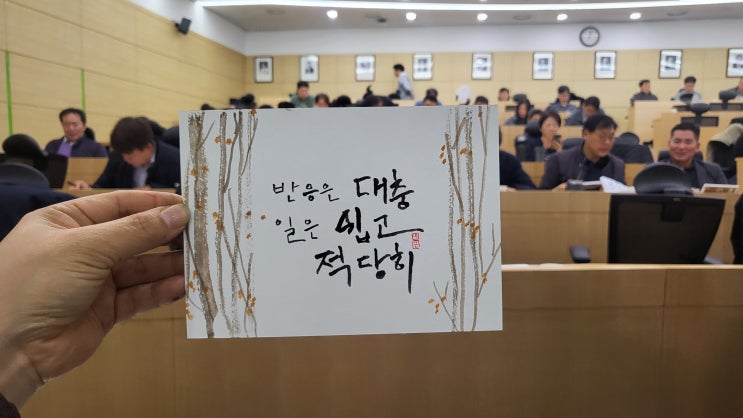 반응은 대충
일은 쉽고
적당히